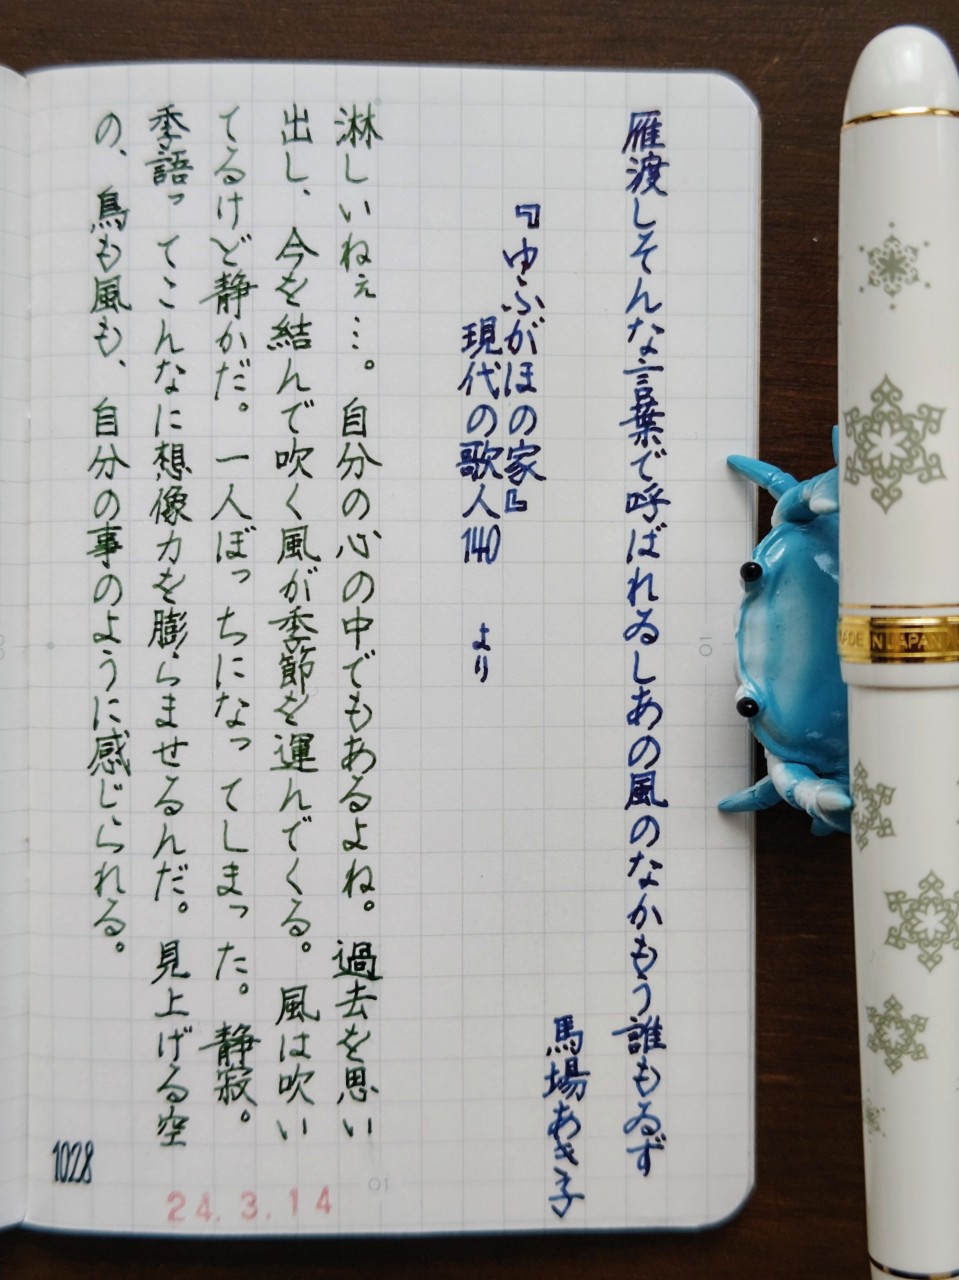 雁渡しそんな言葉で呼ばれゐしあの風のなかもう誰もゐず
馬場あき子
『ゆふがほの家』
現代の歌人140 より
淋しいねぇ…。自分の心の中でもあるよね。過去を思い
出し、今を結んで吹く風が季節を運んでくる。風は吹い
てるけど静かだ。一人ぼっちになってしまった。静寂。
季語ってこんなに想像力を膨らませるんだ。見上げる空
の、鳥も風も、自分の事のように感じられる。
1028
24.3.14
10
10
MADE IN JAPAN